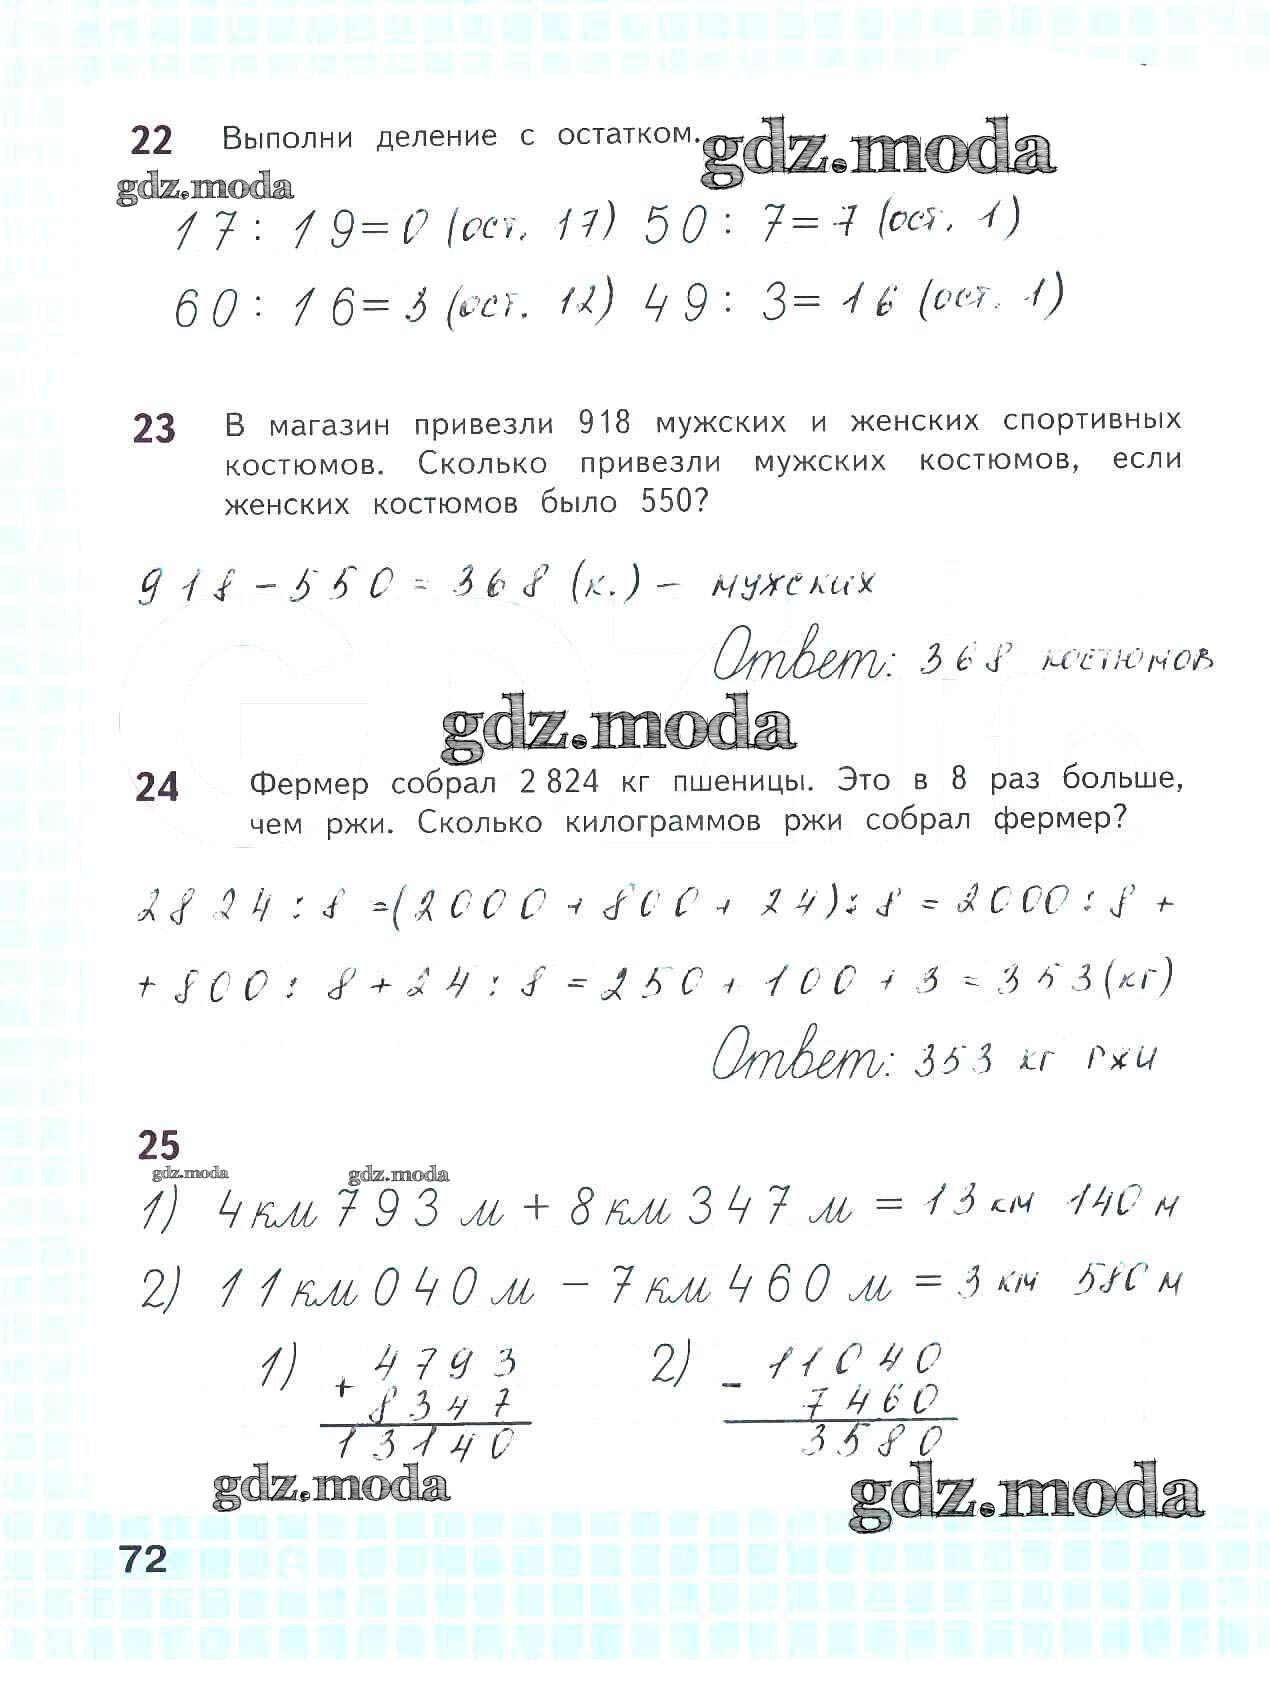 22 Выполни деление с остатком. gdz.moda
gdz.moda
17 : 19 = 0 (ост. 17) 50 : 7 = 7 (ост. 1)
60 : 16 = 3 (ост. 12) 49 : 3 = 16 (ост. 1)
23 В магазин привезли 918 мужских и женских спортивных
костюмов. Сколько привезли мужских костюмов, если
женских костюмов было 550?
918 - 550 = 368 (к.) - мужских
Ответ: 368 костюмов
gdz.moda
24 Фермер собрал 2 824 кг пшеницы. Это в 8 раз больше,
чем ржи. Сколько килограммов ржи собрал фермер?
2824 : 8 = (2000 + 800 + 24) : 8 = 2000 : 8 +
+ 800 : 8 + 24 : 8 = 250 + 100 + 3 = 353 (кг)
Ответ: 353 кг ржи
25
gdz.moda gdz.moda
1) 4 км 793 м + 8 км 347 м = 13 км 140 м
2) 11 км 040 м - 7 км 460 м = 3 км 580 м
1) + 4793 2) - 11040
8347 7460
13140 3580
gdz.moda gdz.moda
72